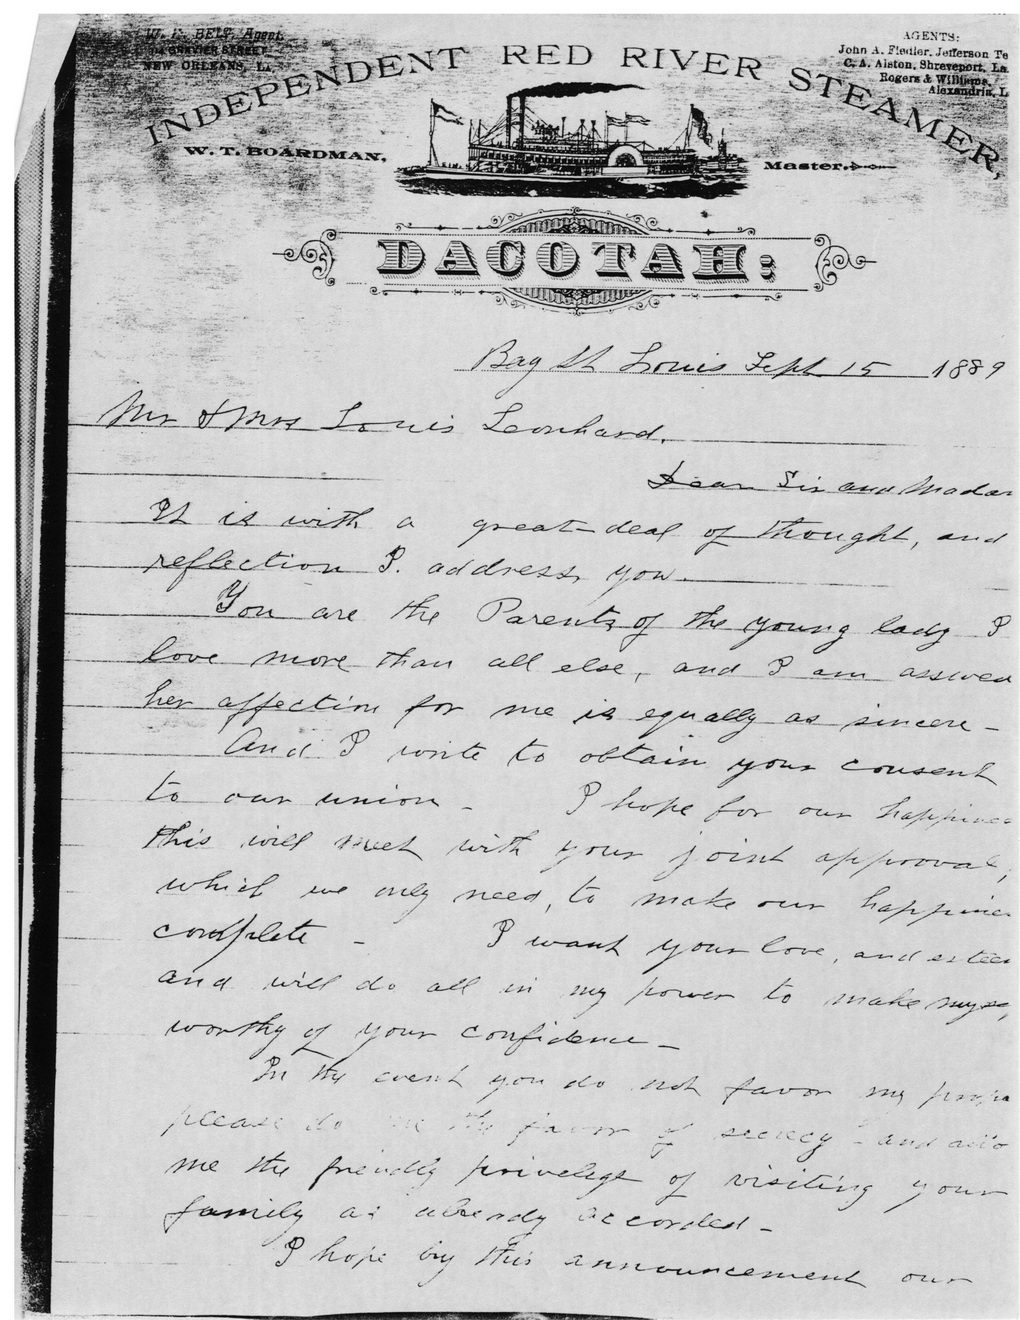 W. F. BELT, Agent,
GRAVIER STREET
NEW ORLEANS, La.
AGENTS:
John A. Fiedler, Jefferson Te
C. A. Alston, Shreveport, La
Rogers & Williams,
Alexandria, L
INDEPENDENT RED RIVER STEAMER,
W. T. BOARDMAN, Master.
DACOTAH:
Bay St Louis Sept 15 1889
Mr & Mrs Louis Leonhard.
Dear Sir and Madam
It is with a great deal of thought, and
reflection I. address you.
You are the Parents of the young lady I
love more than all else, and I am assured
her affection for me is equally as sincere -
And I write to obtain your consent
to our union - I hope for our happines
this will meet with your joint approval,
which we only need, to make our happines
complete - I want your love, and esteem
and will do all in my power to make myse
worthy of your confidence -
In the event you do not favor my propo
please do me the favor of secrecy - and allo
me the friendly privelege of visiting your
family as already accorded -
I hope by this announcement our